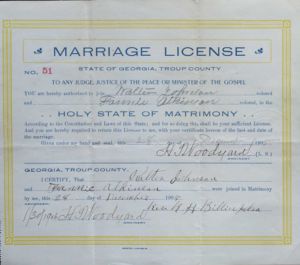 MARRIAGE LICENSE
STATE OF GEORGIA, TROUP COUNTY
NO. 51
TO ANY JUDGE, JUSTICE OF THE PEACE OR MINISTER OF THE GOSPEL
YOU are hereby authorized to join Walter Johnson colored
and Fannie Atkinson colored, in the
HOLY STATE OF MATRIMONY
According to the Constitution and Laws of this State; and for so doing this shall be your sufficient License. And
you are hereby required to return this License to me, with your certificate hereon of the fact and date of
the marriage.
Given under my hand and seal, this 28
H T Woodyard (L. S.)
GEORGIA, TROUP COUNTY.
I CERTIFY, That Walter Johnson
and Fannie Atkinson were joined in Matrimony
by me, this 28 day of December
H T Woodyard Rev. H